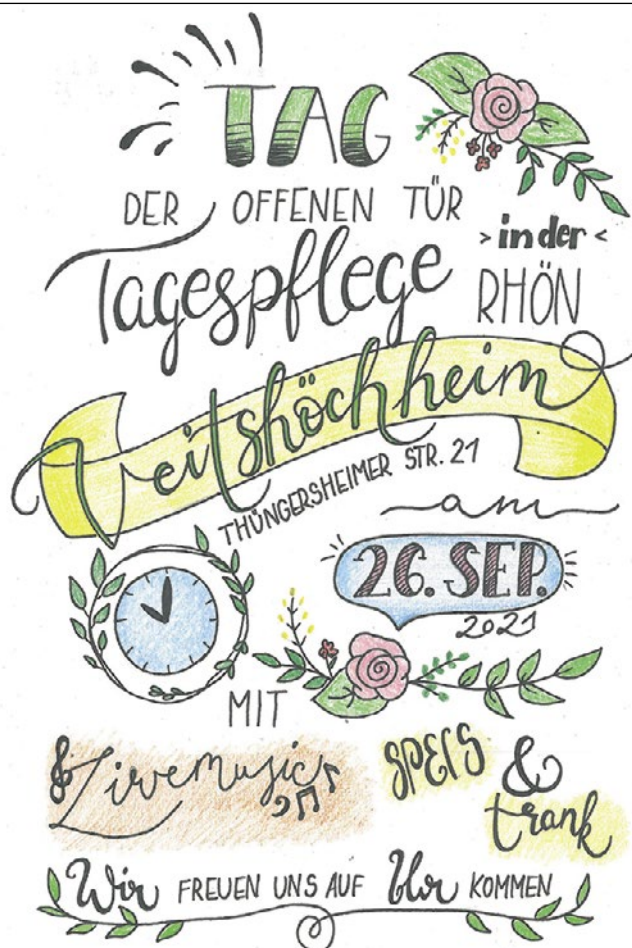 TAG
DER OFFENEN TÜR
Tagespflege
>in der<
RHÖN
Veitshöchheim
THÜNGERSHEIMER STR. 21
am
26. SEP.
2021
MIT
Livemusic
SPEIS &
trank
Wir FREUEN UNS AUF Ihr KOMMEN